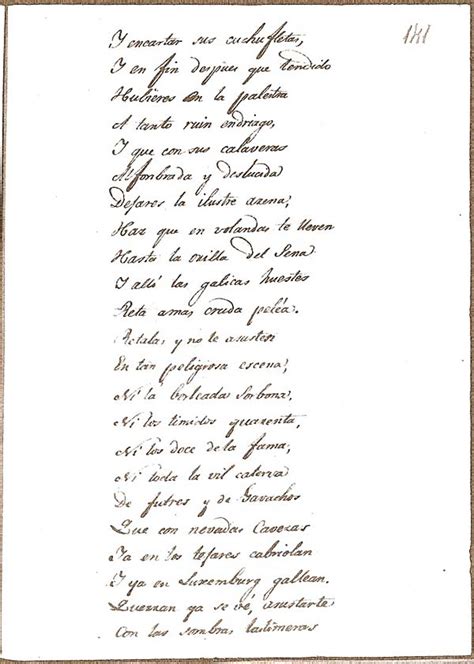 141
Y encartar sus cuchufletas,
Y en fin despues que tendido
Hubieres en la palestra
A tanto ruin endriago,
Y que con sus calaveras
Alfombrada y deslucida
Dejares la ilustre arena,
Haz que en volandas te lleven
Hasta la orilla del Sena
Y alli las galicas huestes
Reta a mas cruda peléa.
Retala, y no te asusten
En tan peligrosa escena,
Ni la borleada Sorbona,
Ni los timidos quarenta,
Ni los doce de la fama,
Ni toda la vil caterva
De futres y de Gavachos
Que con nevadas Cavezas
Ya en los tejares cabriolan
Y ya en Luxemburg gallean.
Querran ya se vé, asustarte
Con las sombras lastimeras